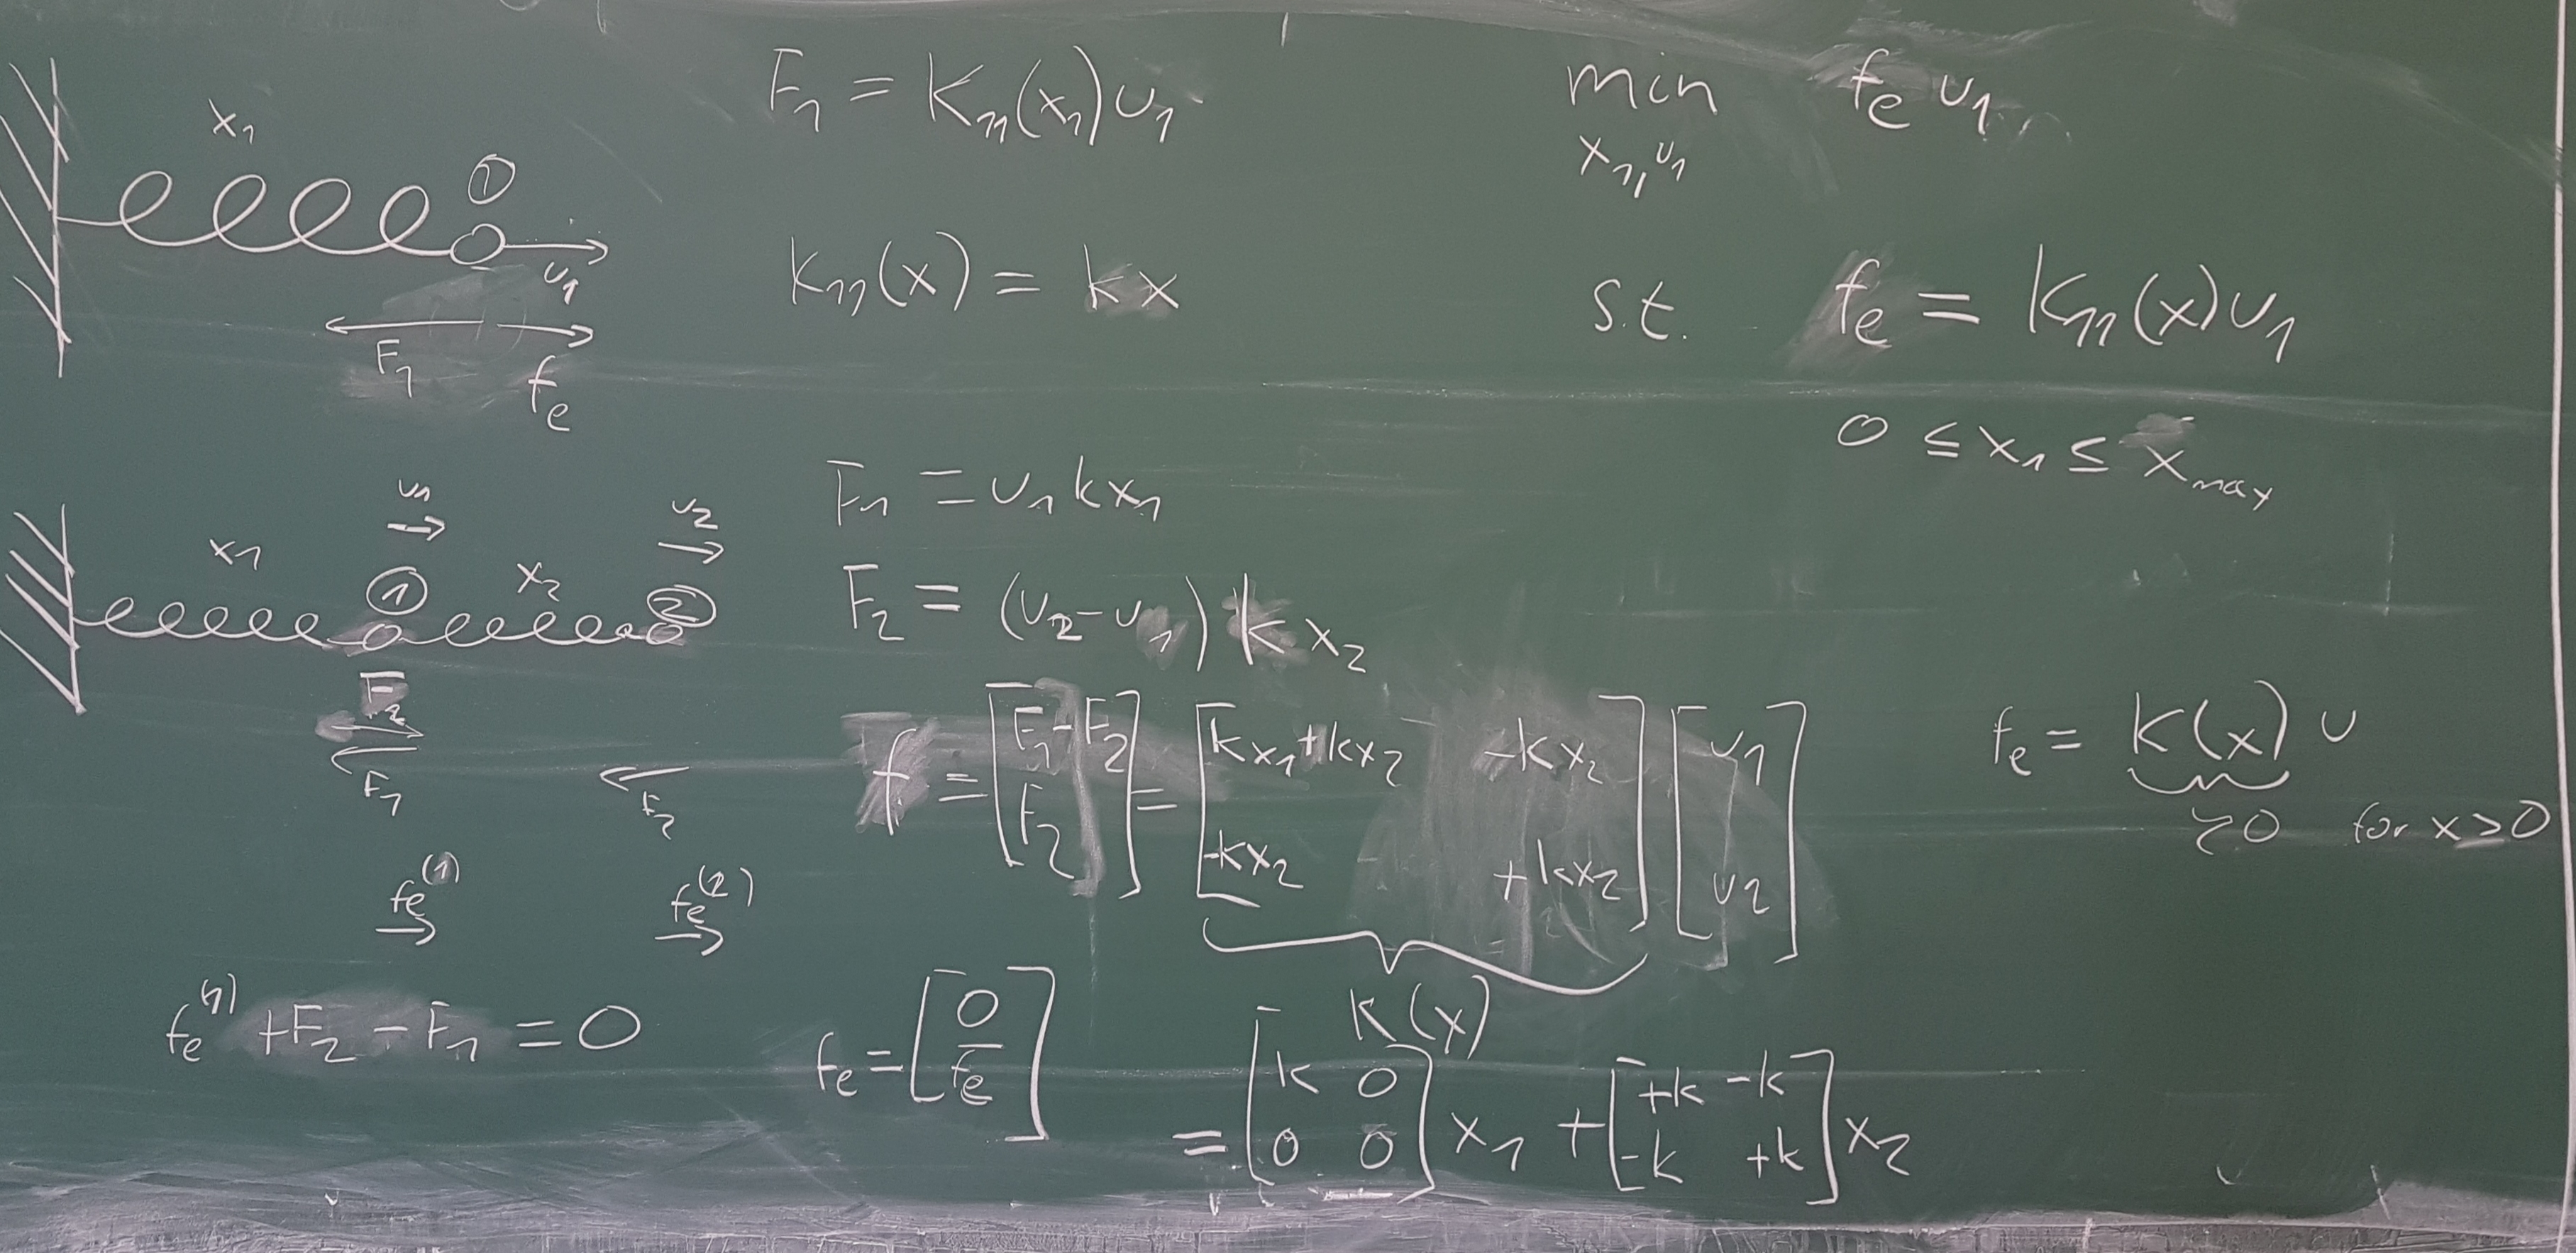 x₁
①
u₁
F₁
fₑ
F₁ = K₁₁(x₁)u₁
K₁₁(x) = kx
min fₑ u₁
x₁,u₁
s.t. fₑ = K₁₁(x)u₁
0 ≤ x₁ ≤ x̄ₘₐₓ
u₁
u₂
x₁
①
x₂
②
F₂
F₁
F₂
fₑ⁽¹⁾
fₑ⁽²⁾
fₑ⁽¹⁾ + F₂ − F₁ = 0
F₁ = u₁kx₁
F₂ = (u₂−u₁)kx₂
f = [F₁−F₂; F₂] = [kx₁+kx₂ −kx₂; −kx₂ +kx₂] [u₁; u₂]
K(x)
fₑ = [0; fₑ]
= [k 0; 0 0] x₁ + [+k −k; −k +k] x₂
fₑ = K(x) u
≽0 for x≥0